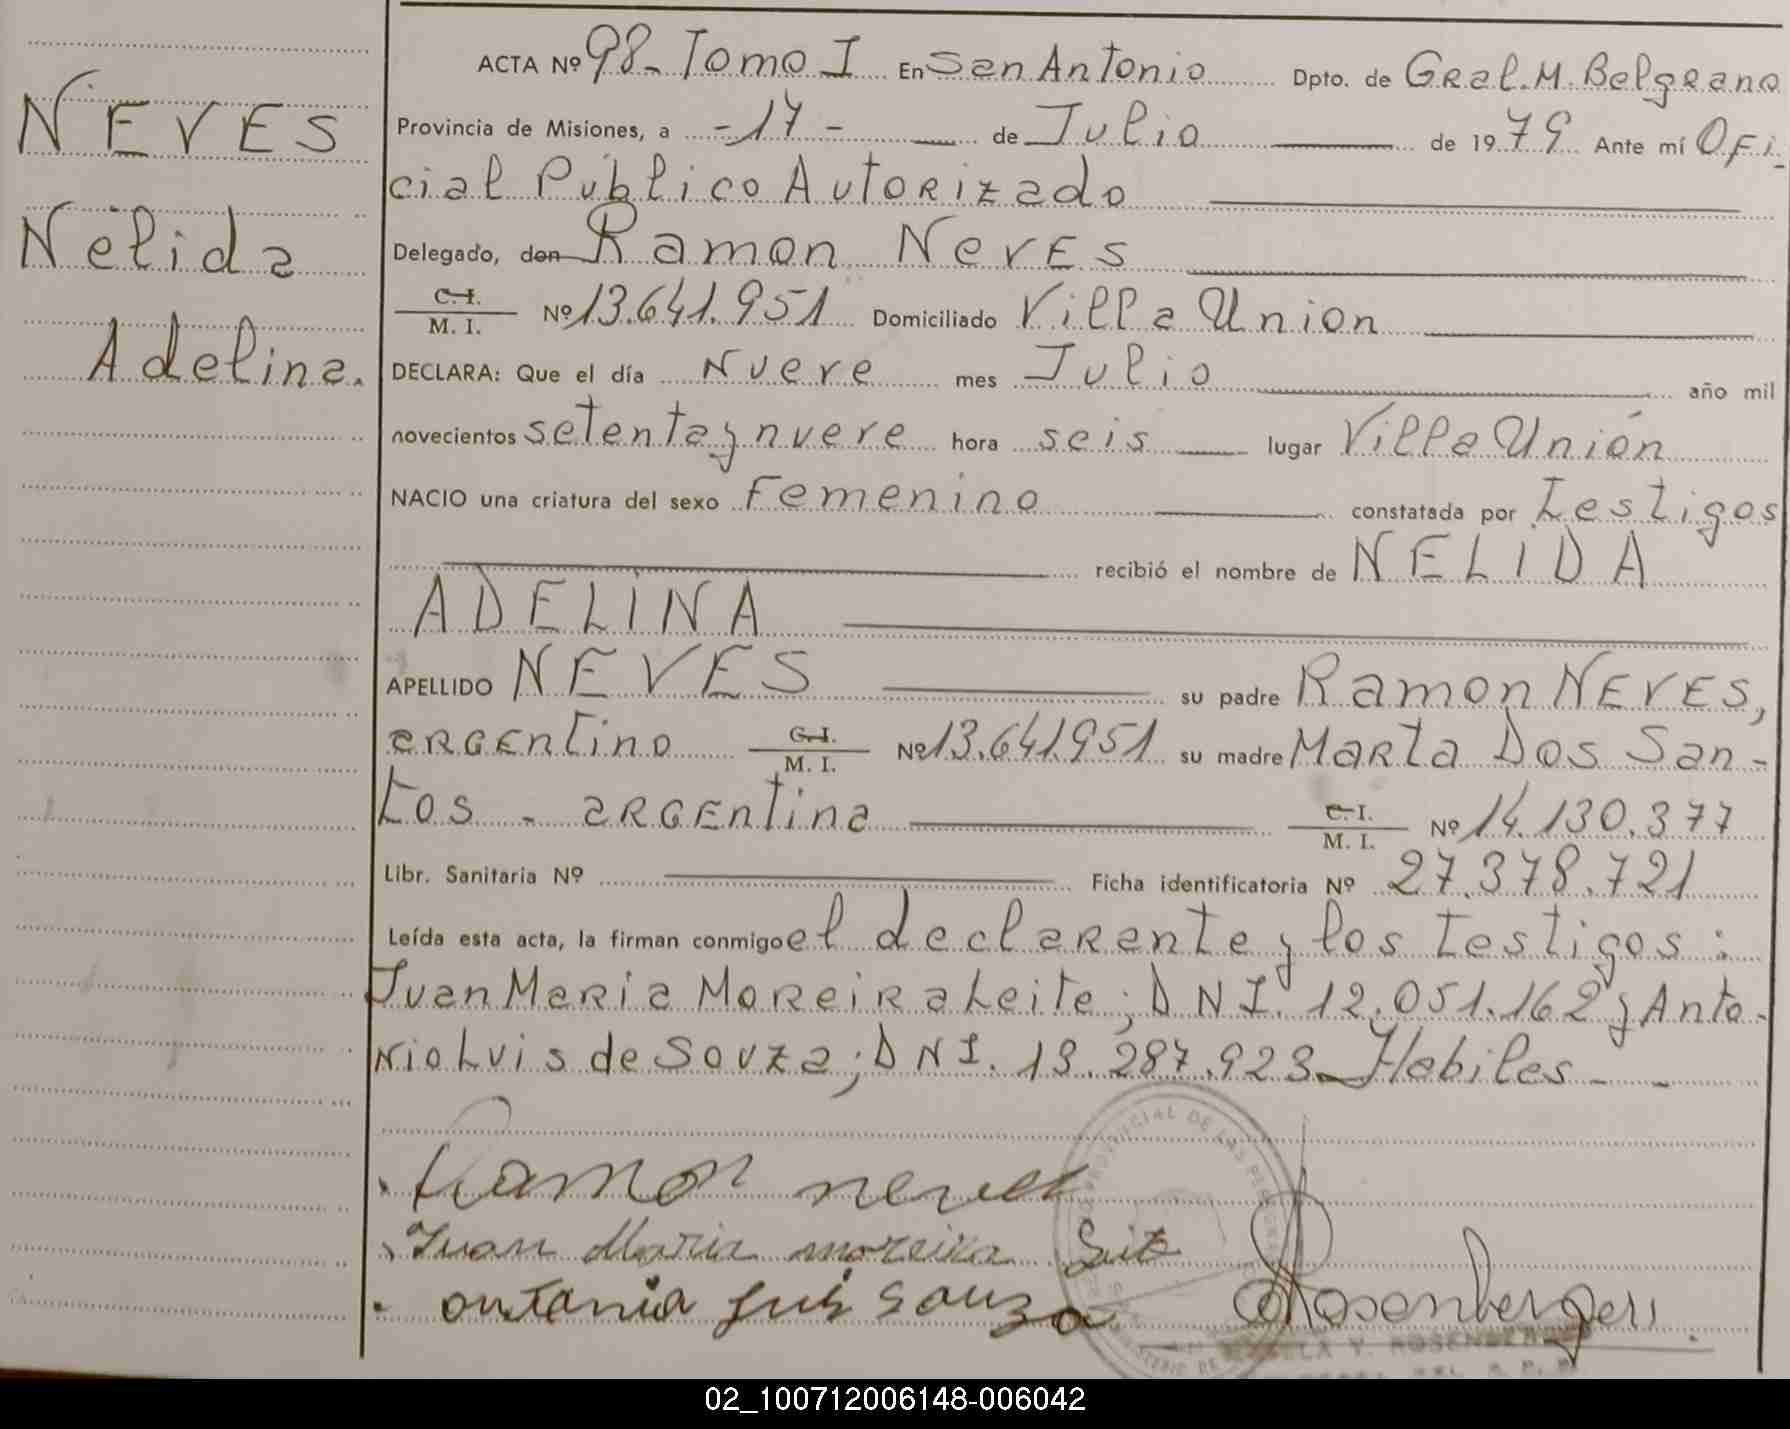 NEVES
Nelida
Adelina.
ACTA Nº 98 - Tomo I En San Antonio Dpto. de Gral. M. Belgrano
Provincia de Misiones, a - 17 - de Julio de 1979 Ante mí Ofi-
cial Público Autorizado
Delegado, don Ramon Neves
C. I. / M. I. Nº 13.641.951 Domiciliado Villa Union
DECLARA: Que el día Nueve mes Julio año mil
novecientos setenta y nueve hora seis lugar Villa Unión
NACIO una criatura del sexo Femenino constatada por Testigos
recibió el nombre de NELIDA
ADELINA
APELLIDO NEVES su padre Ramon NEVES,
argentino C. I. / M. I. Nº 13.641.951 su madre Marta Dos San-
tos - argentina C. I. / M. I. Nº 14.130.377
Libr. Sanitaria Nº Ficha identificatoria Nº 27.378.721
Leída esta acta, la firman conmigo el declarante y los testigos:
Juan Maria Moreira Leite; DNI. 12.051.162 y Anto-
nio Luis de Souza; DNI. 13.287.923 - Habiles - -
Ramon neves
Juan Maria moreira Leite
antonio luis souza Rosenberger
PROVINCIAL DE LAS PERSONAS
ROSENBERGER
02_100712006148-006042